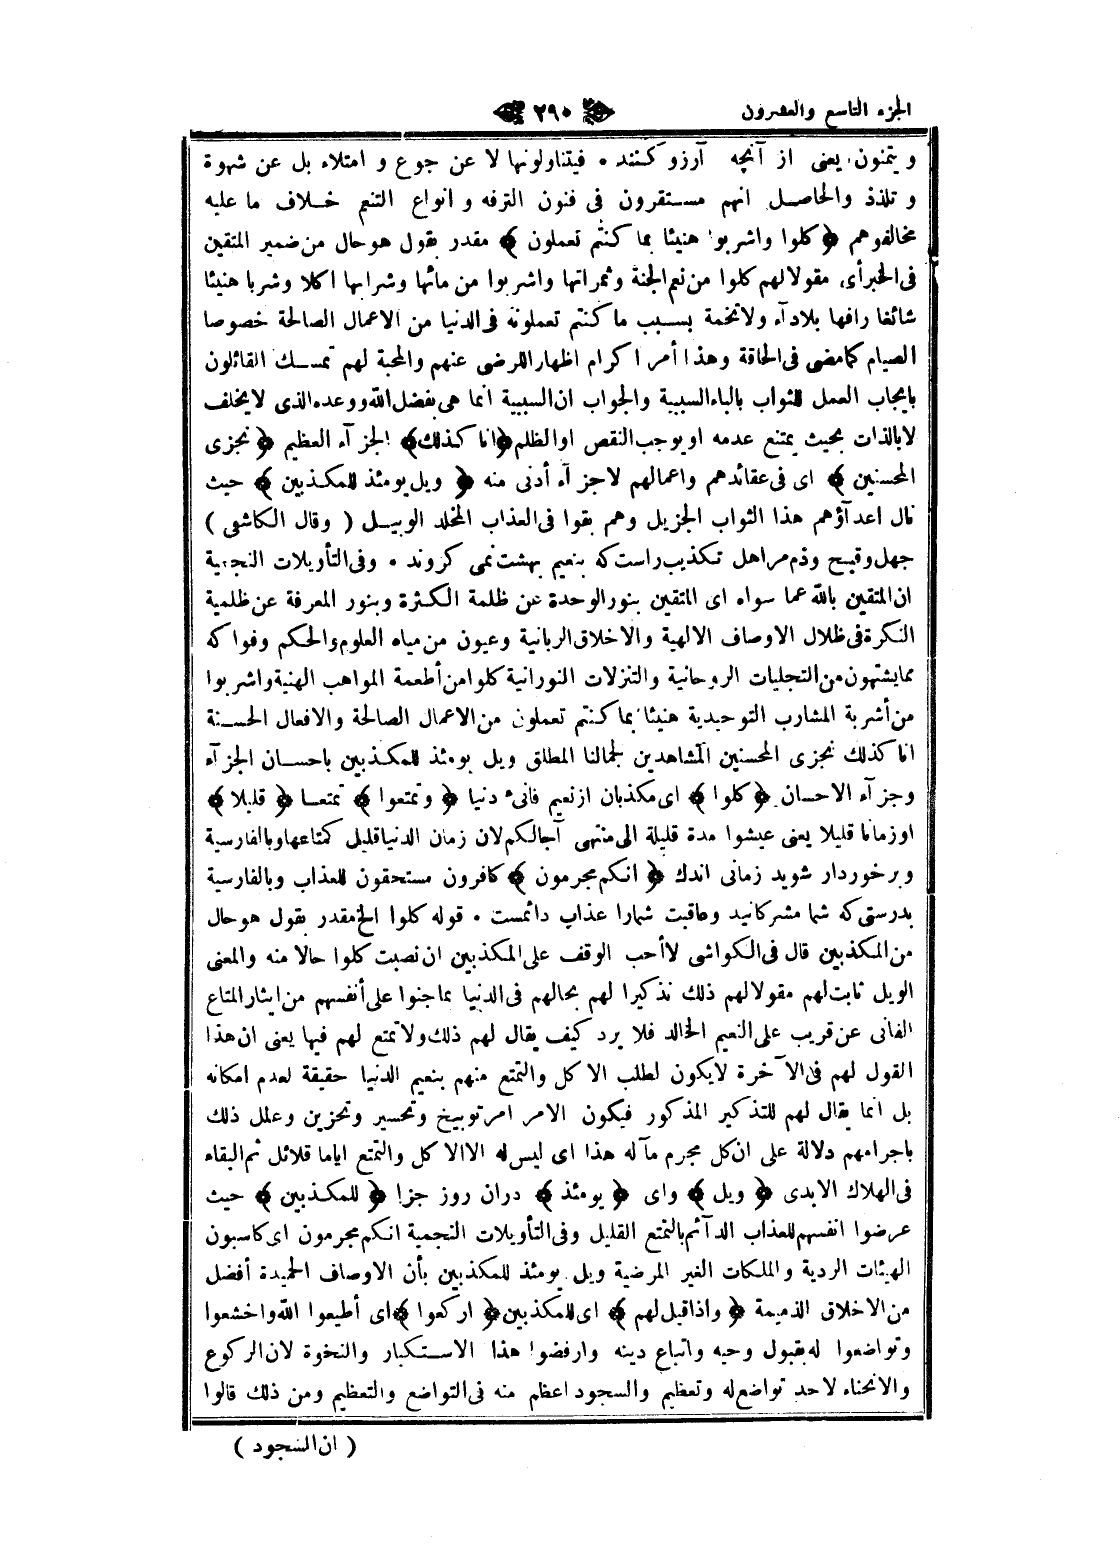 الجزء التاسع والعشرون ٢٩٠
ويتمنون يعنى از آنچه آرزو كنند • فيتناولونها لا عن جوع و امتلاء بل عن شهوة
و تلذذ والحاصل انهم مستقرون فى فنون الترفه و انواع التنعم خلاف ما عليه
مخالفوهم ﴿ كلوا واشربوا هنيئا بما كنتم تعملون ﴾ مقدر بقول هو حال من ضمير المتقين
فى الخبر أى مقولا لهم كلوا من نعم الجنة وثمراتها واشربوا من مائها وشرابها اكلا وشربا هنيئا
شائغا رافها بلا دآء ولا تخمة بسبب ما كنتم تعملونه فى الدنيا من الاعمال الصالحة خصوصا
الصيام كما مضى فى الحاقة وهذا أمر اكرام اظهارا للرضى عنهم والمحبة لهم تمسك القائلون
بايجاب العمل للثواب بالباء السببية والجواب ان السببية انما هى بفضل الله ووعده الذى لا يخلف
لا بالذات بحيث يمتنع عدمه او يوجب النقص او الظلم ﴿ انا كذلك ﴾ الجزآء العظيم ﴿ نجزى
المحسنين ﴾ اى فى عقائدهم واعمالهم لا جزآء أدنى منه ﴿ ويل يومئذ للمكذبين ﴾ حيث
نال اعدآؤهم هذا الثواب الجزيل وهم بقوا فى العذاب المخلد الوبيل ( وقال الكاشفى )
جهل وقبح وذم مر اهل تكذيب راست كه بنعيم بهشت نمى كروند • وفى التأويلات النجمية
ان المتقين بالله عما سواه اى المتقين بنور الوحدة عن ظلمة الكثرة وبنور المعرفة عن ظلمية
النكرة فى ظلال الاوصاف الالهية والاخلاق الربانية وعيون من مياه العلوم والحكم وفواكه
مما يشتهون من التجليات الروحانية والتنزلات النورانية كلوا من أطعمة المواهب الهنية واشربوا
من أشربة المشارب التوحيدية هنيئا بما كنتم تعملون من الاعمال الصالحة والافعال الحسنة
انا كذلك نجزى المحسنين المشاهدين لجمالنا المطلق ويل يومئذ للمكذبين باحسان الجزآء
وجزآء الاحسان ﴿ كلوا ﴾ اى مكذبان از نعيم فانىء دنيا ﴿ وتمتعوا ﴾ تمتعا ﴿ قليلا ﴾
او زمانا قليلا يعنى عيشوا مدة قليلة الى منتهى آجالكم لان زمان الدنيا قليل كمتاعها وبالفارسية
وبرخوردار شويد زمانى اندك ﴿ انكم مجرمون ﴾ كافرون مستحقون للعذاب وبالفارسية
بدرستى كه شما مشركانيد وعاقبت شمارا عذاب دائمست • قوله كلوا الخ مقدر بقول هو حال
من المكذبين قال فى الكواشى لا أحب الوقف على المكذبين ان نصبت كلوا حالا منه والمعنى
الويل ثابت لهم مقولا لهم ذلك تذكيرا لهم بحالهم فى الدنيا بما جنوا على أنفسهم من ايثار المتاع
الفانى عن قريب على النعيم الخالد فلا يرد كيف يقال لهم ذلك ولا تمتع لهم فيها يعنى ان هذا
القول لهم فى الآخرة لا يكون لطلب الاكل والتمتع منهم بنعيم الدنيا حقيقة لعدم امكانه
بل انما يقال لهم للتذكير المذكور فيكون الامر امر توبيخ وتحسير وتحزين وعلل ذلك
باجرامهم دلالة على ان كل مجرم مآله هذا اى ليس له الا الاكل والتمتع اياما قلائل ثم البقاء
فى الهلاك الابدى ﴿ ويل ﴾ واى ﴿ يومئذ ﴾ دران روز جزا ﴿ للمكذبين ﴾ حيث
عرضوا انفسهم للعذاب الدآئم بالتمتع القليل وفى التأويلات النجمية انكم مجرمون اى كاسبون
الهيئات الردية والملكات الغير المرضية ويل يومئذ للمكذبين بأن الاوصاف الحميدة أفضل
من الاخلاق الذميمة ﴿ واذا قيل لهم ﴾ اى للمكذبين ﴿ اركعوا ﴾ اى أطيعوا الله واخشعوا
وتواضعوا له بقبول وحيه واتباع دينه وارفضوا هذا الاستكبار والنخوة لان الركوع
والانحناء لاحد تواضع له وتعظيم والسجود اعظم منه فى التواضع والتعظيم ومن ذلك قالوا
( ان السجود )